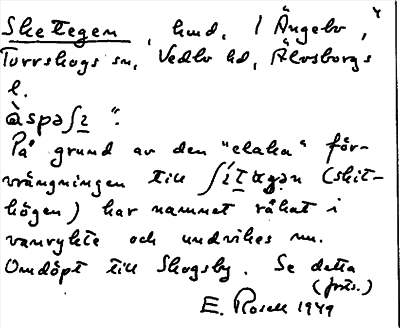 Skettegen, hmd, i Ängebo,
Torrskogs sn, Vedbo hd, Älvsborgs
l.
àspəʃɪ ".
På grund av den "elaka" för-
vrängningen till ʃítʊgən (skit-
högen) har namnet råkat i
vanrykte och undvikes nu.
Omdöpt till Skogsby. Se detta
(forts.)
E. Rosell 1949